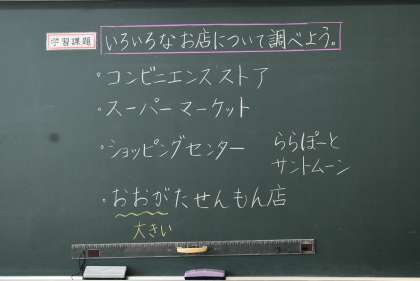 学習課題 いろいろなお店について調べよう。
・コンビニエンスストア
・スーパーマーケット
・ショッピングセンター ららぽーと
サントムーン
・おおがたせんもん店
大きい